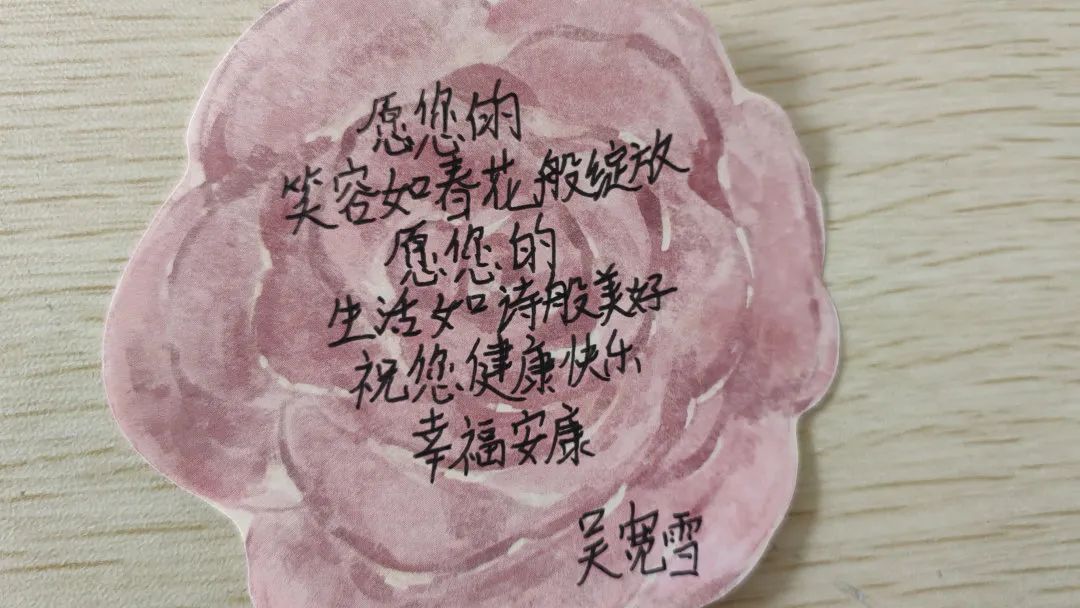 愿您的
笑容如春花般绽放
愿您的
生活如诗般美好
祝您健康快乐
幸福安康
吴宽雪